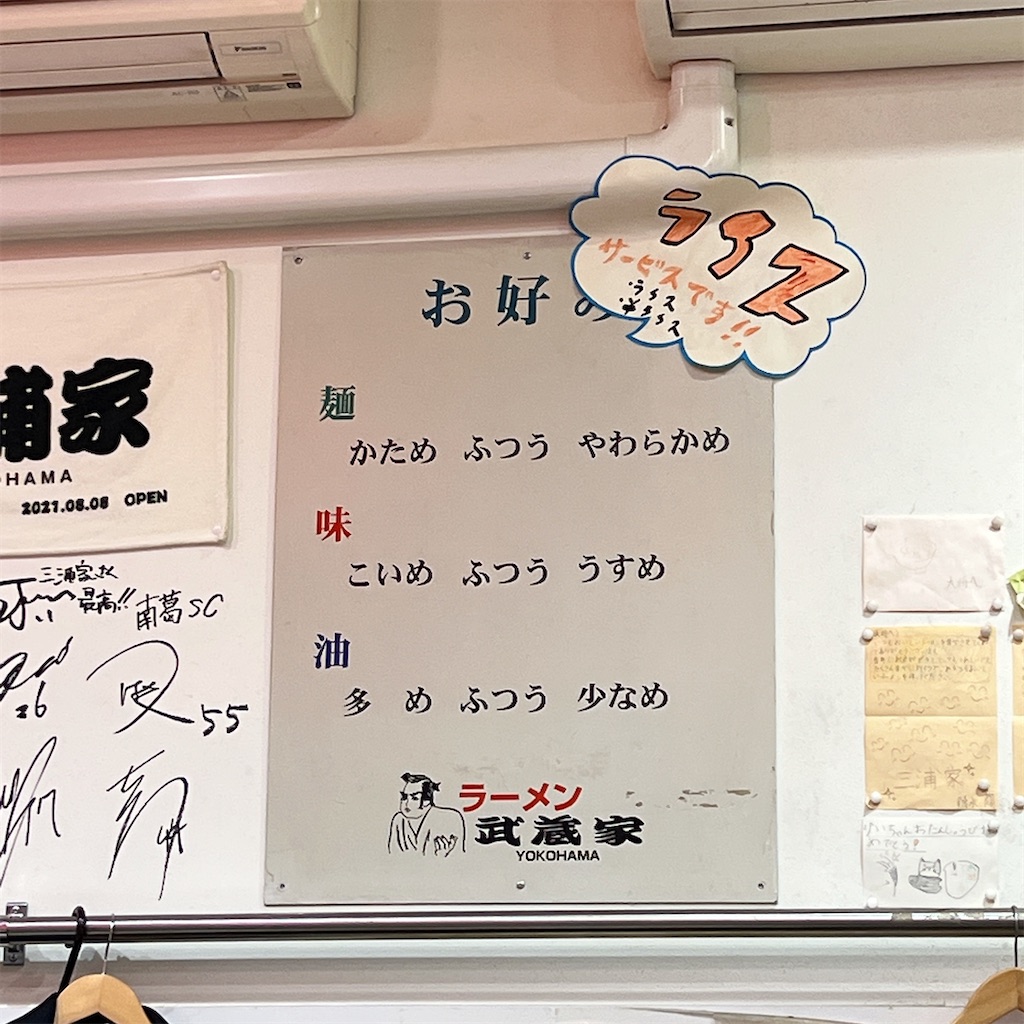 DAIKIN
ライス
サービスです!!
・ライス
お好
麺
かため ふつう やわらかめ
味
こいめ ふつう うすめ
油
多 め ふつう 少なめ
ラーメン
武蔵家
YOKOHAMA
浦家
OHAMA
2021.08.08 OPEN
三浦家さん
最高!!
南葛SC
26
55
三浦家